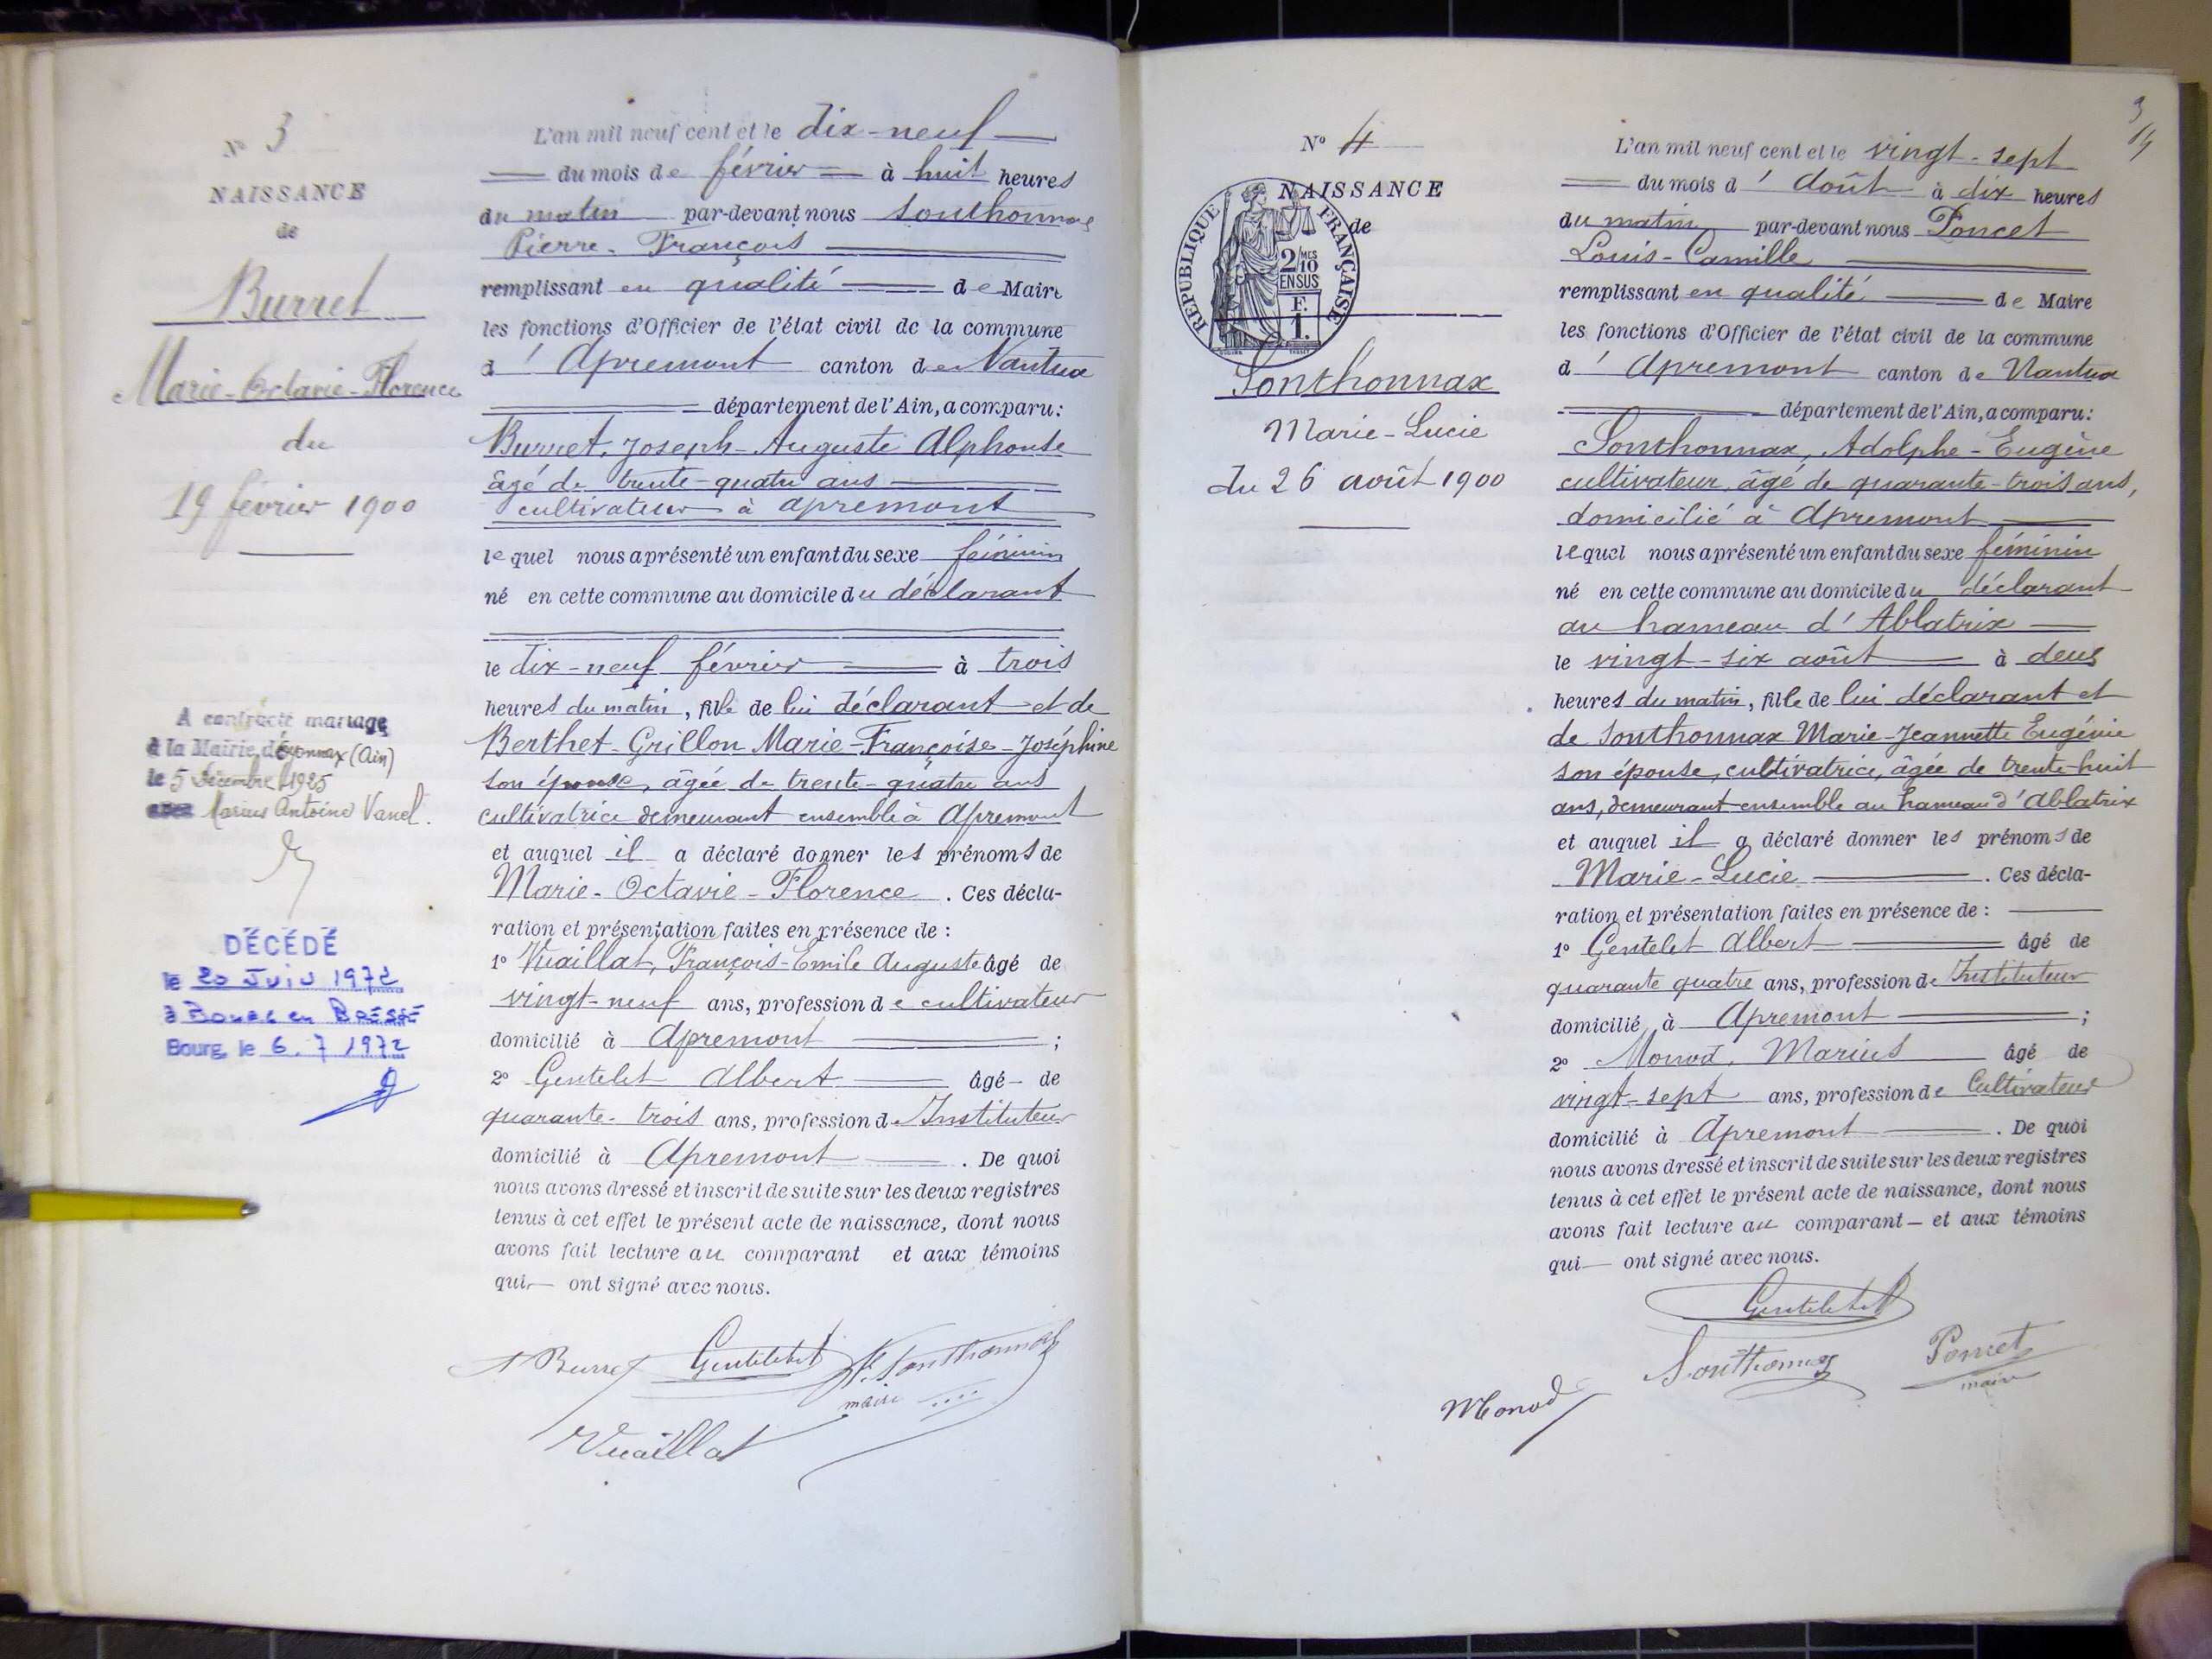 N° 3
NAISSANCE
de
Burret
Marie-Octavie-Florence
du
19 février 1900
A contracté mariage
à la Mairie d'Oyonnax (Ain)
le 5 Décembre 1925
avec Marius Antoine Vanel.
DÉCÉDÉ
le 20 Juin 1972
à Bourg en BRESSE
Bourg, le 6.7 1972
L'an mil neuf cent et le dix-neuf
du mois de février à huit heures
du matin par-devant nous Sonthonnax
Pierre-François
remplissant en qualité de Maire
les fonctions d'Officier de l'état civil de la commune
d' Apremont canton de Nantua
département de l'Ain, a comparu:
Burret, Joseph-Auguste Alphonse
âgé de trente-quatre ans
cultivateur à Apremont
lequel nous a présenté un enfant du sexe féminin
né en cette commune au domicile du déclarant
le dix-neuf février à trois
heures du matin, fille de lui déclarant et de
Berthet-Grillon Marie-Françoise-Joséphine
son épouse, âgée de trente-quatre ans
cultivatrice demeurant ensemble à Apremont
et auquel il a déclaré donner les prénoms de
Marie-Octavie-Florence. Ces décla-
ration et présentation faites en présence de:
1° Vuaillat, François-Emile Auguste âgé de
vingt-neuf ans, profession de cultivateur
domicilié à Apremont ;
2° Gentelet Albert âgé de
quarante-trois ans, profession d'Instituteur
domicilié à Apremont. De quoi
nous avons dressé et inscrit de suite sur les deux registres
tenus à cet effet le présent acte de naissance, dont nous
avons fait lecture au comparant et aux témoins
qui ont signé avec nous.
A Burret Gentelet F. Sonthonnax
maire
Vuaillat
3
14
N° 4
NAISSANCE
de
REPUBLIQUE FRANÇAISE
2/10 MES
EN SUS
F.
1.
Sonthonnax
Marie-Lucie
du 26 août 1900
L'an mil neuf cent et le vingt-sept
du mois d'août à dix heures
du matin par-devant nous Poncet
Louis-Camille
remplissant en qualité de Maire
les fonctions d'Officier de l'état civil de la commune
d' Apremont canton de Nantua
département de l'Ain, a comparu:
Sonthonnax, Adolphe-Eugène
cultivateur, âgé de quarante-trois ans,
domicilié à Apremont
lequel nous a présenté un enfant du sexe féminin
né en cette commune au domicile du déclarant
au hameau d'Ablatrix
le vingt-six août à deux
heures du matin, fille de lui déclarant et
de Sonthonnax Marie-Jeannette Eugénie
son épouse, cultivatrice, âgée de trente-huit
ans, demeurant ensemble au hameau d'Ablatrix
et auquel il a déclaré donner les prénoms de
Marie-Lucie. Ces décla-
ration et présentation faites en présence de:
1° Gentelet Albert âgé de
quarante quatre ans, profession d'Instituteur
domicilié à Apremont ;
2° Monod, Marius âgé de
vingt-sept ans, profession de Cultivateur
domicilié à Apremont. De quoi
nous avons dressé et inscrit de suite sur les deux registres
tenus à cet effet le présent acte de naissance, dont nous
avons fait lecture au comparant et aux témoins
qui ont signé avec nous.
Gentelet
Sonthonnax Poncet
maire
Monod